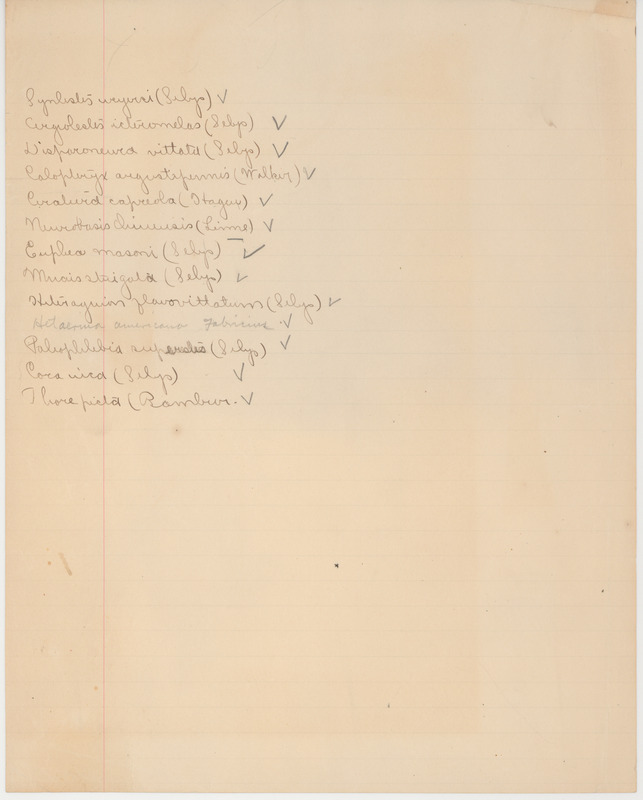 Synlestes weyersi (Selys) ✓
Argiolestes icteromelas (Selys) ✓
Disparoneura vittata (Selys) ✓
Calopteryx angustipennis (Walker) ✓
Ceratura capreola (Hagen) ✓
Neurobasis Chinensis (Linne) ✓
Euphea masoni (Selys) ✓
Mnais strigata (Selys) ✓
Heteragrion flavovittatum (Selys) ✓
Hetaerina americana Fabricius ✓
Paleophlebia superstes (Selys) ✓
Cora inca (Selys) ✓
Thore picta (Rambur. ✓